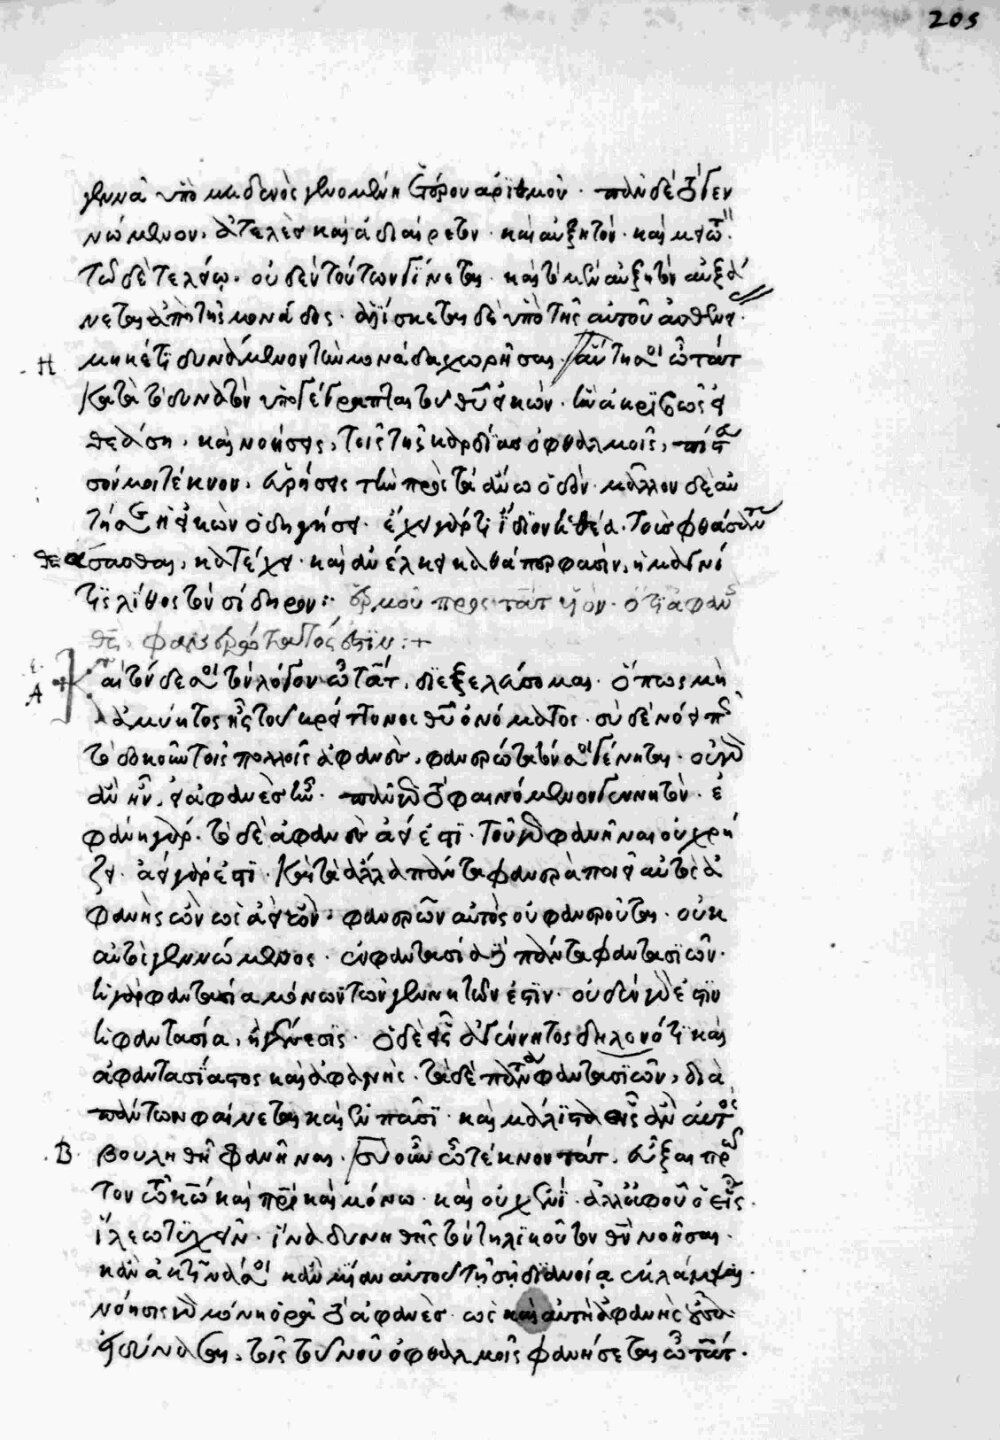 205
γεννᾶ ὑπὸ μηδενὸς γεννωμένη ἑτέρου ἀριθμοῦ · πᾶν δὲ τὸ γεν
νώμενον, ἀτελὲς καὶ ἀδιαίρετον · καὶ αὐξητὸν · καὶ μειωτ
τῷ δὲ τελείῳ · οὐδὲν τούτων γίνεται · καὶ τὸ μὲν αὐξητὸν αὐξά
νεται ἀπὸ τῆς μονάδος · ἁλίσκεται δὲ ὑπὸ τῆς αὐτοῦ ἀσθενεί
Η μηκέτι δυνάμενον τὴν μονάδα χωρῆσαι · αὕτη σοι ὦ τάτ
κατὰ τὸ δυνατὸν ὑπογέγραπται τοῦ θεοῦ εἰκών · ἣν ἀκριβῶς εἰ
θεάσῃ, καὶ νοήσεις, τοῖς τῆς καρδίας ὀφθαλμοῖς, πίστ
σόν μοι τέκνον, εὑρήσεις τὴν πρὸς τὰ ἄνω ὁδόν · μᾶλλον δὲ αὐ
τή σε ἡ εἰκὼν ὁδηγήσει · ἔχει γάρ τι ἴδιον ἡ θέα · τοὺς φθάσαντ
θεάσασθαι, κατέχει · καὶ ἀνέλκει καθάπερ φασὶν, ἡ μαγνῆ
τις λίθος τὸν σίδηρον :· ἑρμοῦ πρὸς τὰτ υἱόν · ὅτι ἀφανὴς
θς φανερώτατός ἐστιν :+
ε
Α καὶ τόνδε σοι τὸν λόγον ὦ τὰτ, διεξελεύσομαι · ὅπως μὴ
ἀμύητος ἦς τοῦ κρείττονος θεοῦ ὀνόματος · σὺ δὲ νόει π
τὸ δοκοῦν τοῖς πολλοῖς ἀφανὲς, φανερώτατόν σοι γένηται · οὐ γὰρ
ἂν ἦν, εἰ ἀφανὲς ἦν · πᾶν γὰρ τὸ φαινόμενον γεννητὸν · ἐ
φάνη γάρ · τὸ δὲ ἀφανὲς ἀεί ἐστι · τοῦ γὰρ φανῆναι οὐ χρή
ζει · ἀεὶ γάρ ἐστι · καὶ τὰ ἄλλα πάντα φανερὰ ποιεῖ αὐτὸς ἀ
φανὴς ὢν ὡς ἀεὶ ὤν · φανερῶν αὐτὸς οὐ φανεροῦται · οὐκ
αὐτὸς γεννώμενος · ἐν φαντασίᾳ δὲ πάντα φαντασιῶν ·
ἡ γὰρ φαντασία μόνων τῶν γεννητῶν ἐστίν · οὐδὲν γάρ ἐστιν
ἡ φαντασία, ἢ γένεσις · ὁ δὲ εἷς ἀγέννητος δηλονότι καὶ
ἀφαντασίαστος καὶ ἀφανὴς · τὰ δὲ πάντα φαντασιῶν, διὰ
πάντων φαίνεται καὶ ἐν πᾶσι · καὶ μάλιστα οἷς ἂν αὐτὸς
Β βουληθῇ φανῆναι · σὺ οὖν ὦ τέκνον τάτ, εὖξαι πρῶ
τον τῷ κῳ καὶ πρὶ καὶ μόνῳ · καὶ οὐχ ἑνὶ · ἀλλ' ἀφ' οὗ ὁ εἷς ·
ἵλεω τυχεῖν · ἵνα δυνηθῇς τὸν τηλικοῦτον θεὸν νοῆσαι ·
κἂν ἀκτῖνά σοι κἂν μίαν αὐτοῦ τῇ σῇ διανοίᾳ ἐκλάμψαι ·
νόησις γὰρ μόνη ὁρᾷ τὸ ἀφανὲς · ὡς καὶ αὐτὴ ἀφανὴς οὖσα
εἰ δύνασαι, τοῖς τοῦ νοῦ ὀφθαλμοῖς φανήσεται ὦ τάτ ·